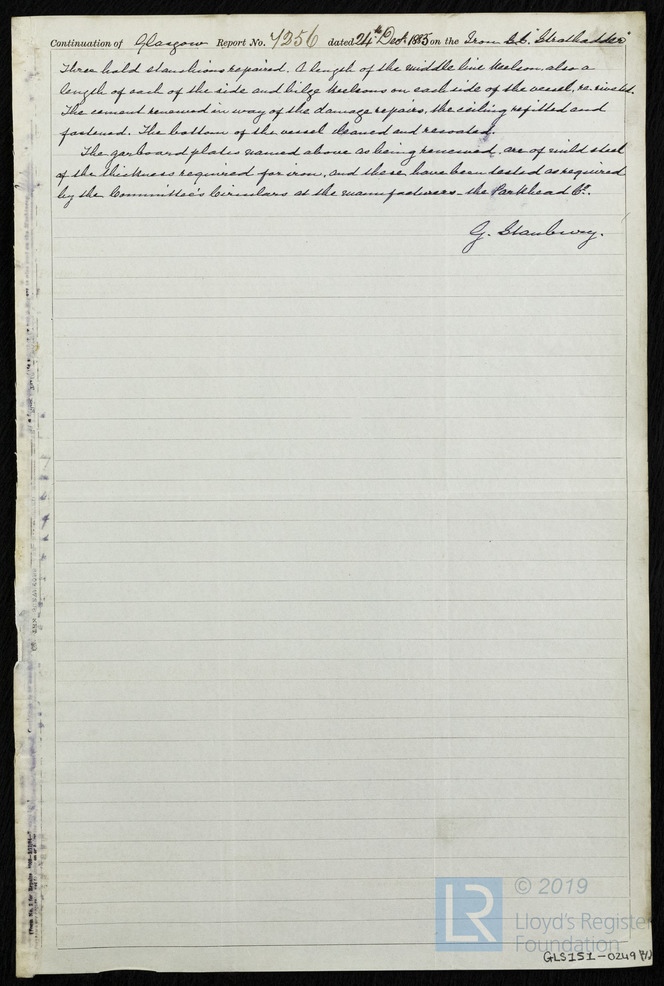 Continuation of Glasgow Report No. 7256 dated 24th Dec 1885 on the Iron S.S. Strathadder
Three hold stanchions repaired. A length of the middle line keelson, also a
length of each of the side and bilge keelsons on each side of the vessel, re-riveted.
The cement renewed in way of the damage repairs, the ceiling refitted and
fastened. The bottom of the vessel cleaned and recoated.
The garboard plates named above as being renewed, are of mild steel
of the thickness required for iron, and these have been tested as required
by the Committee's Circulars at the manufacturers - the Parkhead Co.
G. Stanbury.
© 2019
LR
Lloyd's Register
Foundation
GLS151-0249